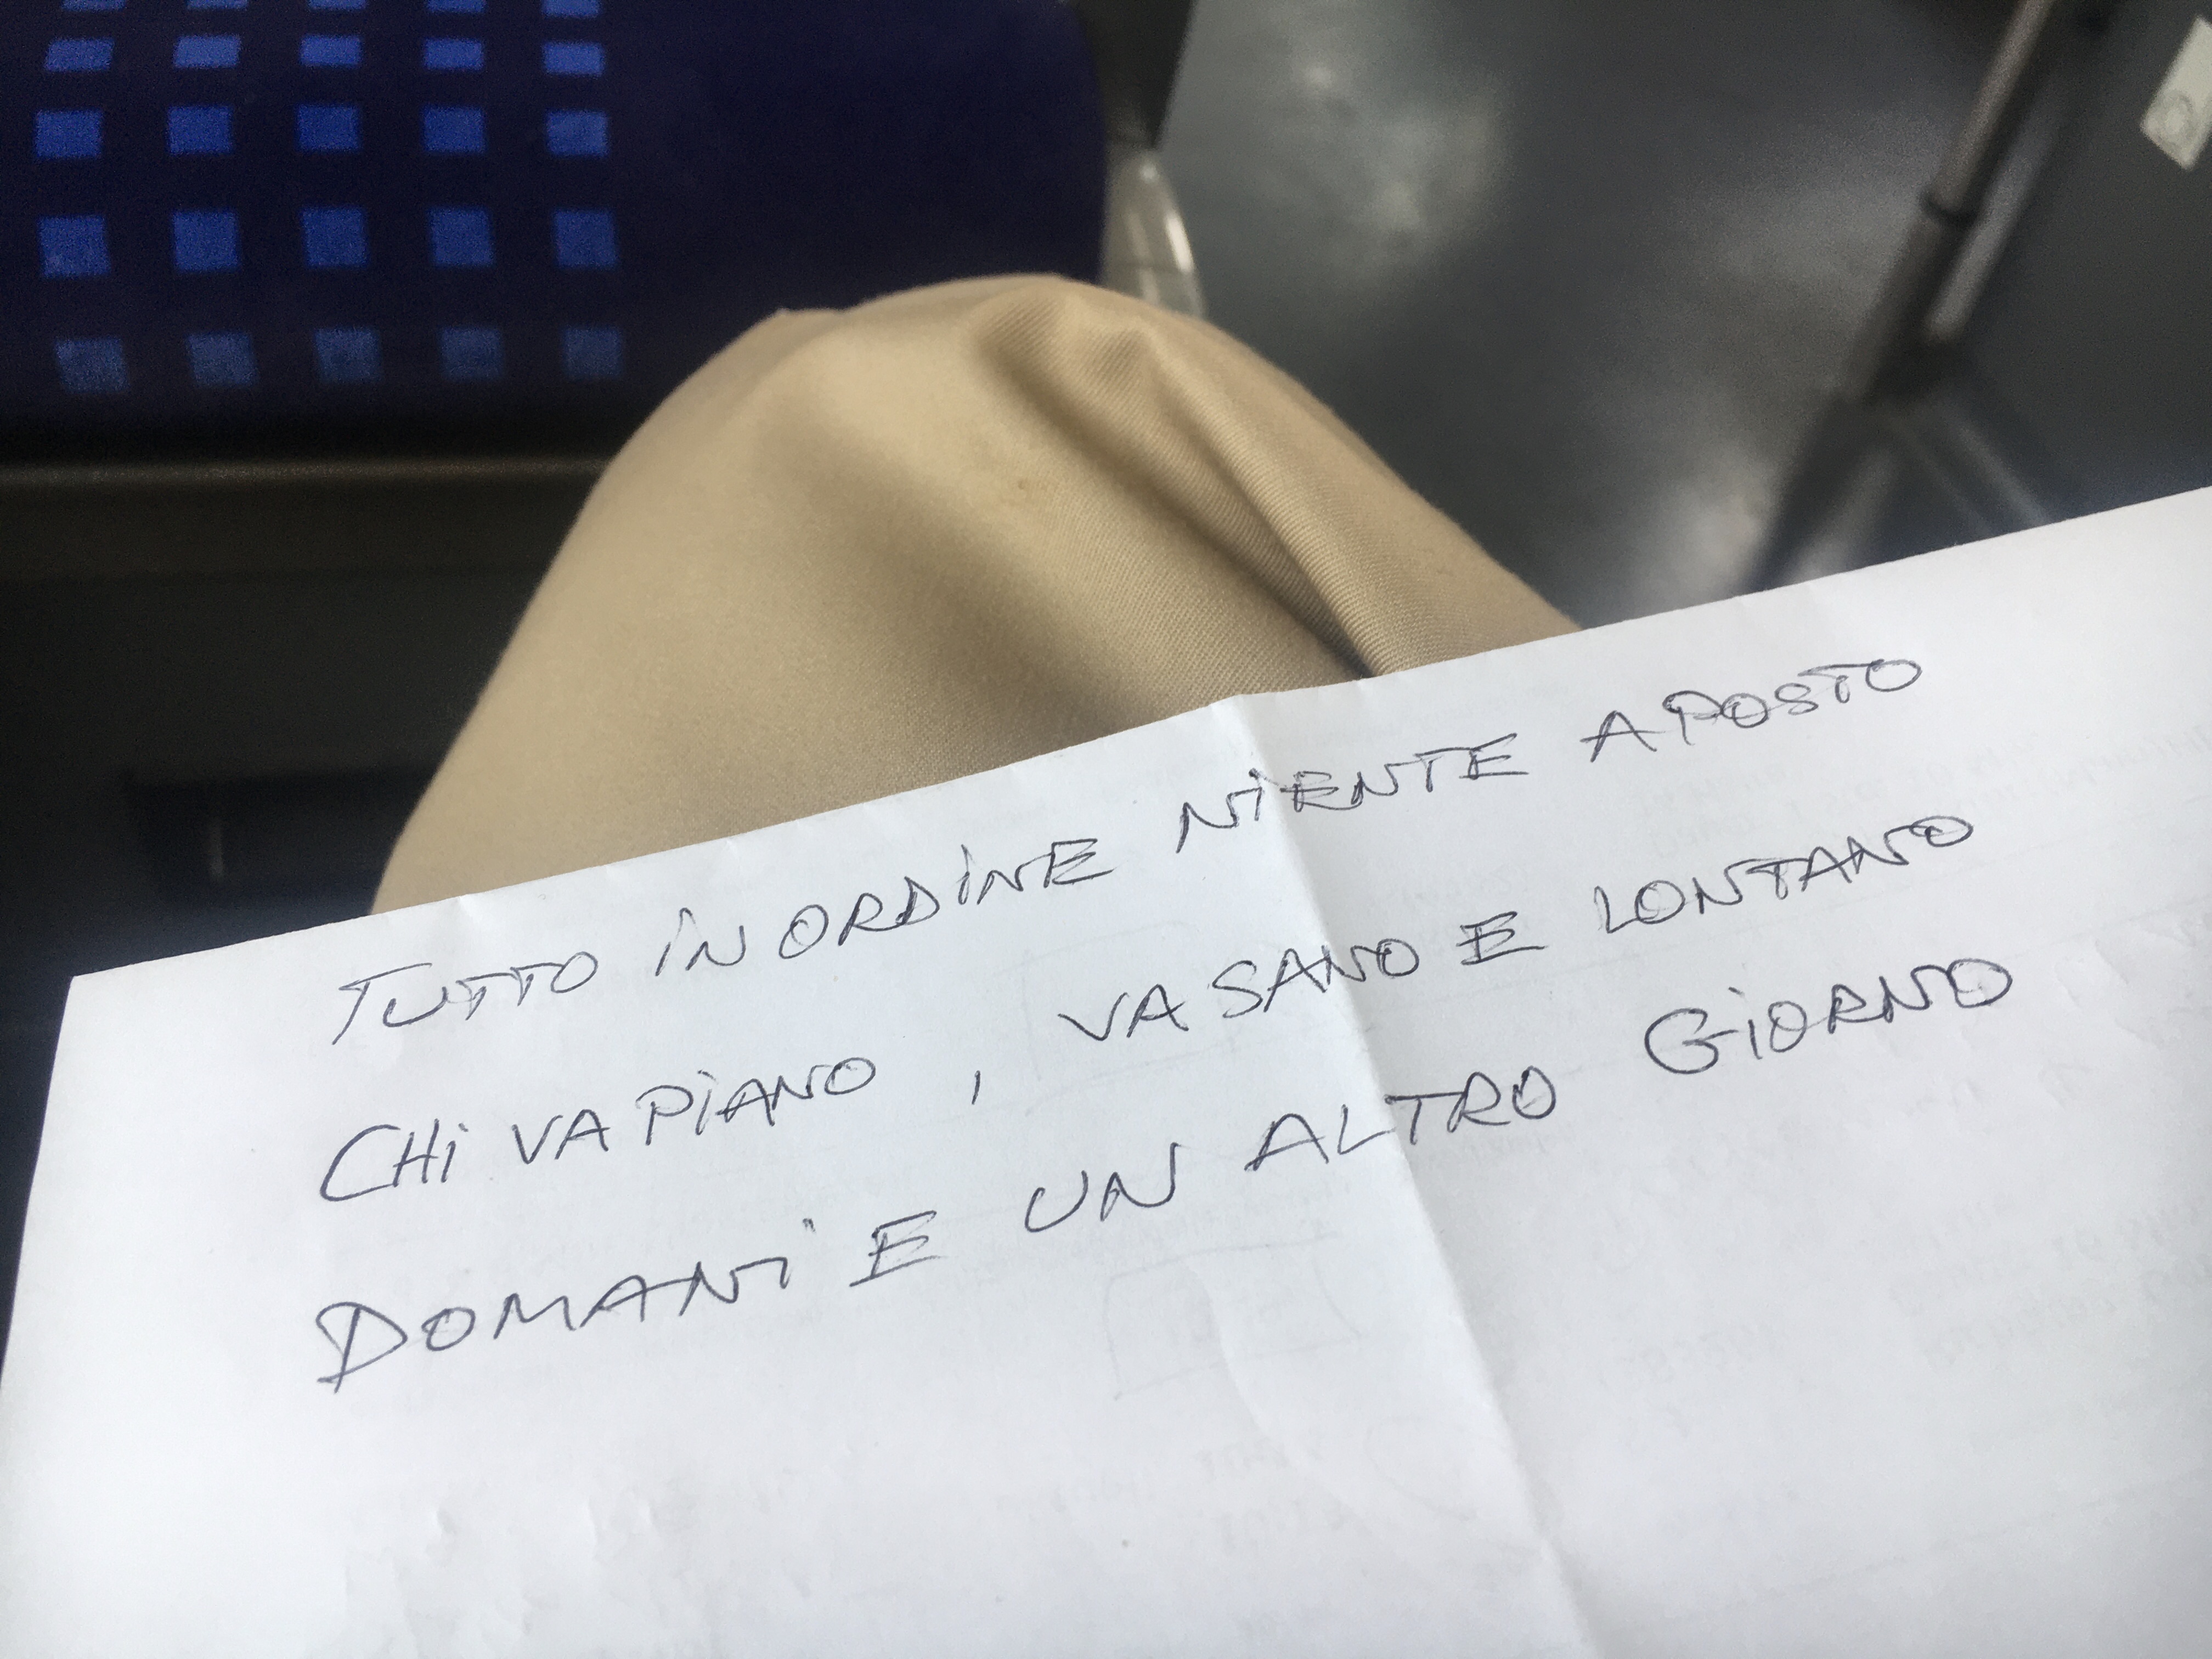 TUTTO IN ORDINE NIENTE A POSTO
CHI VA PIANO, VA SANO E LONTANO
DOMANI E UN ALTRO GIORNO